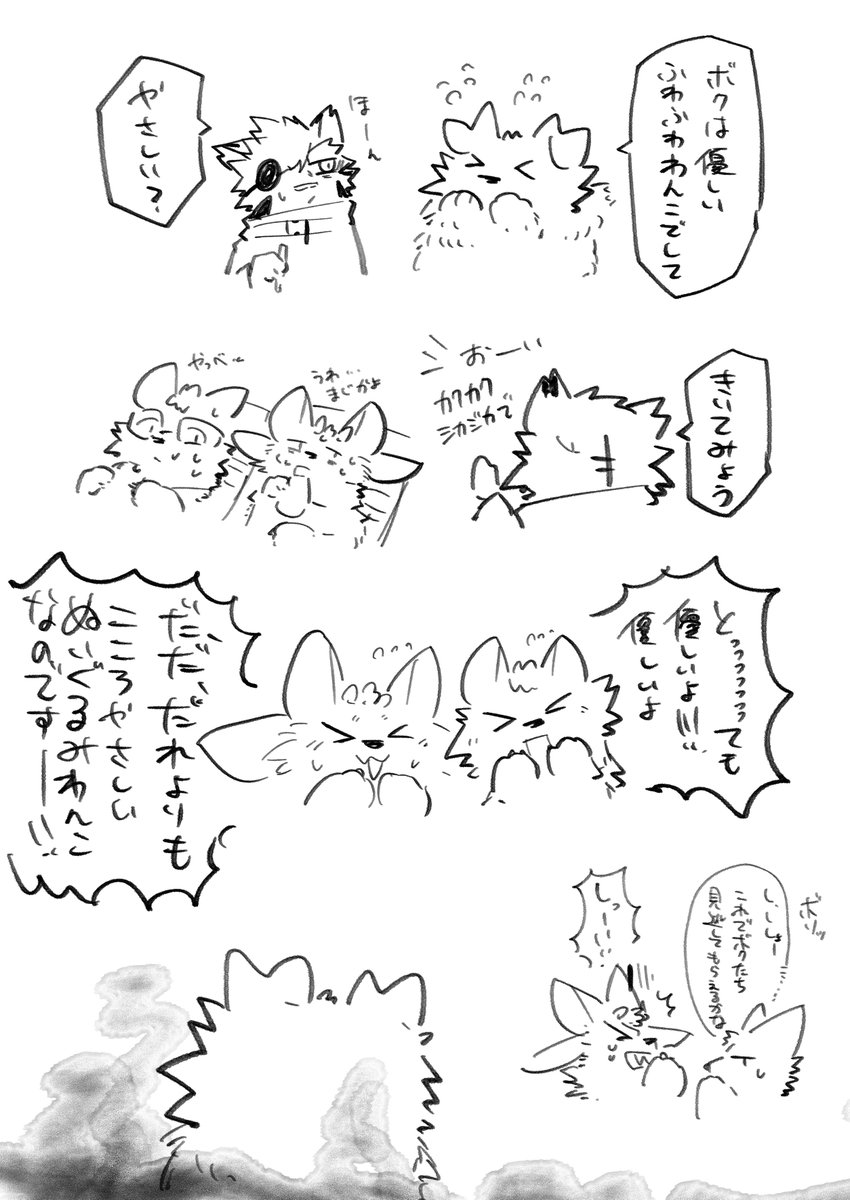 ボクは優しい
ふわふわわんこでして
ほーん
やさしい？
きいてみよう
おーい
カクカク
シカジカで
うわ…
まじかよ
やっべー
とっっっっっっっても
優しいよ!!!
優しいよ
だ、だ、だれよりも
こころやさしい
ぬいぐるみわんこ
なのですー!!
ボソッ
これでボクたち
見逃してもらえるかな
しっーい!!